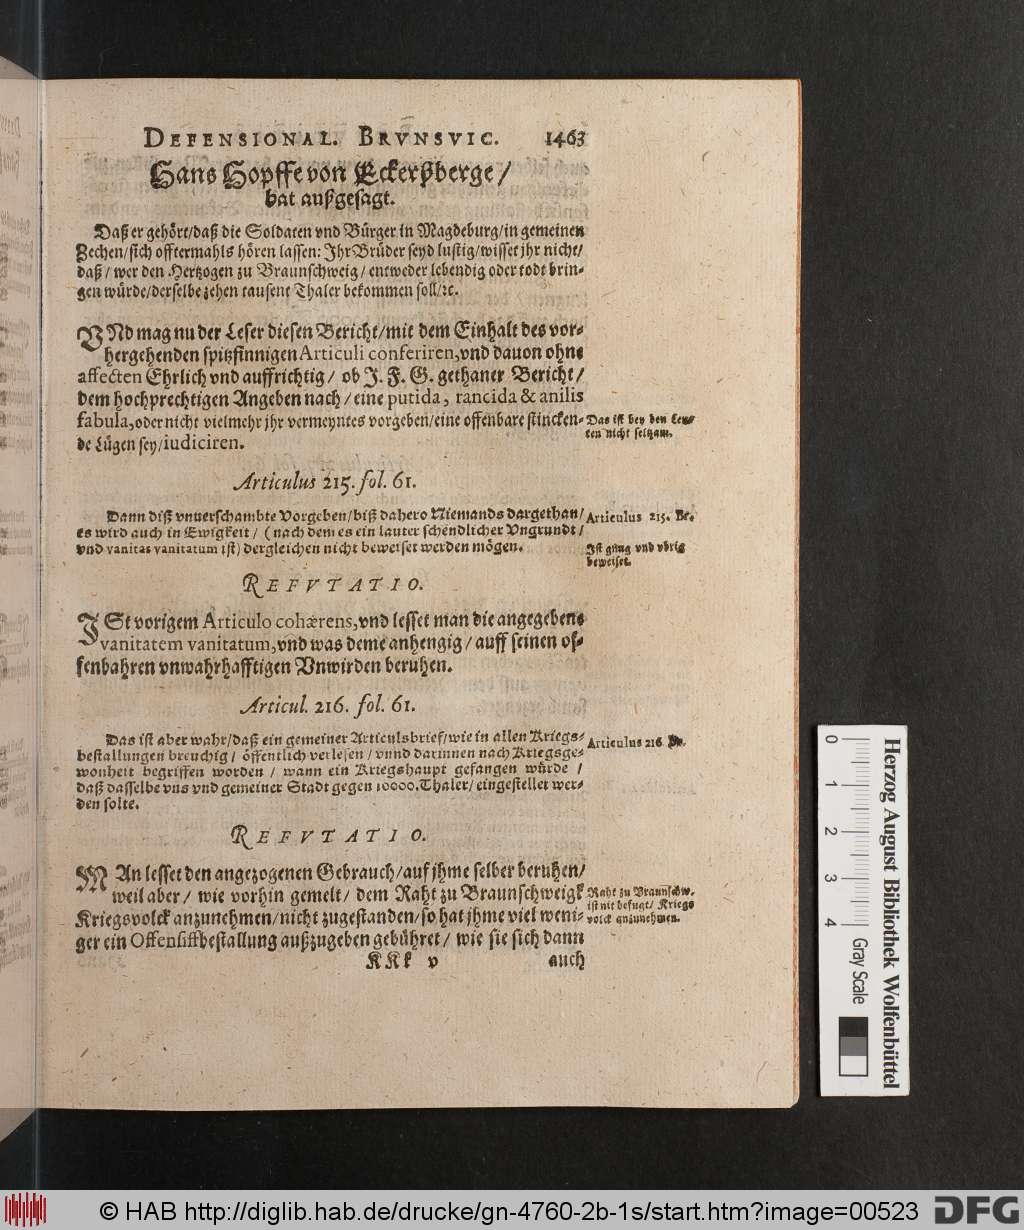 DEFENSIONAL. BRVNSVIC. 1463
Hans Hopffe von Eckerßberge /
hat außgesagt.
Daß er gehört/daß die Soldaten vnd Bürger in Magdeburg/in gemeinen
Zechen/sich offtermahls hören lassen: Ihr Brüder seyd lustig/wisset jhr nicht/
daß / wer den Hertzogen zu Braunschweig / entweder lebendig oder todt brin-
gen würde/derselbe zehen tausent Thaler bekommen soll/ꝛc.
VNd mag nu der Leser diesen Bericht/mit dem Einhalt des vor-
hergehenden spitzfinnigen Articuli conferiren,vnd dauon ohne
affecten Ehrlich vnd auffrichtig / ob J. F. G. gethaner Bericht/
dem hochprechtigen Angeben nach / eine putida, rancida & anilis
fabula,oder nicht vielmehr jhr vermeyntes vorgeben/eine offenbare stincken-
de Lügen sey/iudiciren.
Das ist bey den Leu-
ten nicht seltzam.
Articulus 215. fol. 61.
Dann diß vnuerschambte Vorgeben/biß dahero Niemands dargethan/
es wird auch in Ewigkeit / (nach dem es ein lauter schendlicher Vngrundt /
vnd vanitas vanitatum ist) dergleichen nicht beweiset werden mögen.
Articulus 215. Br.
Ist gnug vnd vbrig
beweiset.
REFVTATIO.
ISt vorigem Articulo cohærens,vnd lesset man die angegebene
vanitatem vanitatum,vnd was deme anhengig / auff seinen of-
fenbahren vnwahrhafftigen Vnwirden beruhen.
Articul. 216. fol. 61.
Das ist aber wahr/daß ein gemeiner Articulsbrief/wie in allen Kriegs-
bestallungen breuchig / öffentlich verlesen / vnnd darinnen nach Kriegsge-
wonheit begriffen worden / wann ein Kriegshaupt gefangen würde /
daß dasselbe vns vnd gemeiner Stadt gegen 10000. Thaler/ eingestellet wer-
den solte.
Articulus 216. Br.
REFVTATIO.
MAn lesset den angezogenen Gebrauch/auf jhme selber beruhen/
weil aber / wie vorhin gemelt / dem Raht zu Braunschweigk
Kriegsvolck anzunehmen/nicht zugestanden/so hat jhme viel weni-
ger ein Offensiffbestallung außzugeben gebühret / wie sie sich dann
Raht zu Braunschw.
ist nit befugt/ Kriegs
volck anzunehmen.
KKk v auch
0 1 2 3 4
Gray Scale
Herzog August Bibliothek Wolfenbüttel
© HAB http://diglib.hab.de/drucke/gn-4760-2b-1s/start.htm?image=00523
DFG